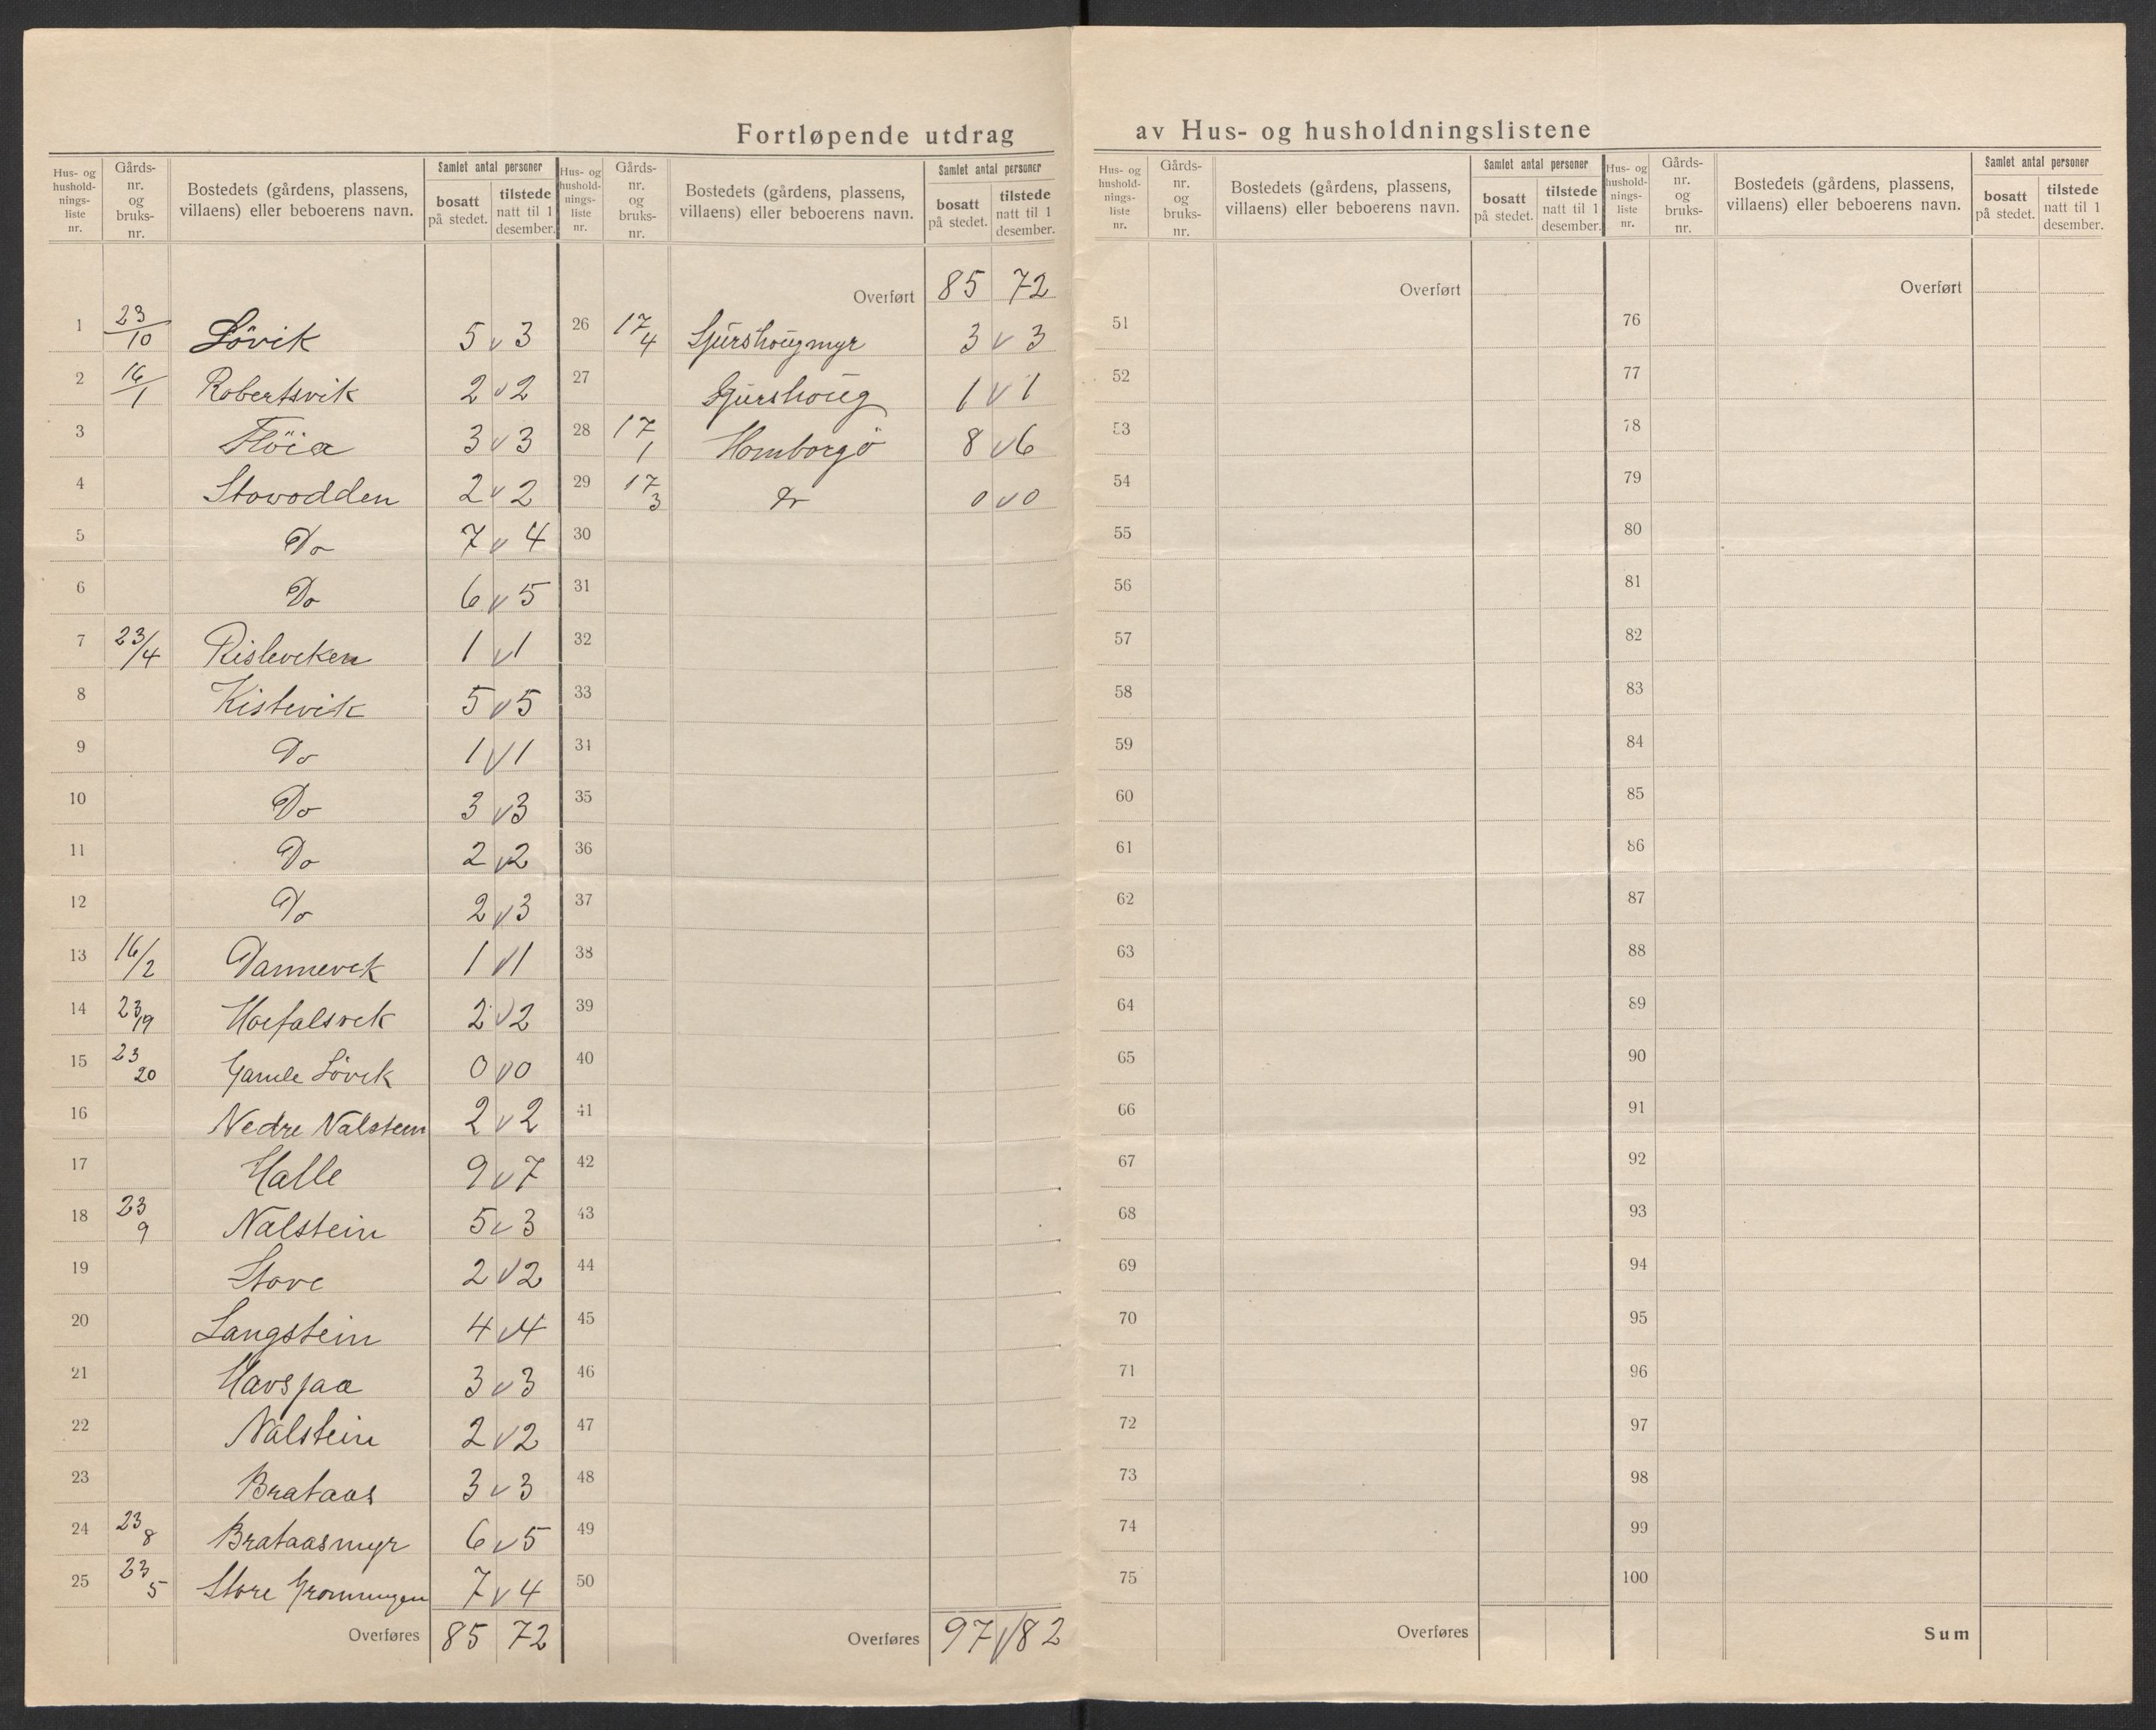 Fortløpende utdrag av Hus- og husholdningslistene
Hus- og hushold-nings-liste nr. Gårds-nr. og bruks-nr. Bostedets (gårdens, plassens, villaens) eller beboerens navn. Samlet antal personer bosatt på stedet. tilstede natt til 1 desember.
1 23/10 Lövik 5 v 3
2 16/1 Robertsvik 2 v 2
3 Flöia 3 v 3
4 Stovodden 2 v 2
5 Do 7 v 4
6 Do 6 v 5
7 23/4 1 v 1
8 Kistevik 5 v 5
9 Do 1 v 1
10 Do 3 v 3
11 Do 2 v 2
12 Do 2 v 3
13 16/2 Dannevek 1 v 1
14 23/19 2 v 2
15 23 20 Gamle Lövek 0 v 0
16 Nedre Nalstein 2 v 2
17 Halle 9 v 7
18 23 9 Nalstein 5 v 3
19 Stove 2 v 2
20 Langstein 4 v 4
21 Havsjaa 3 v 3
22 Nalstein 2 v 2
23 Brataas 3 v 3
24 23 8 Brataasmyr 6 v 5
25 23 5 Store Gromningen 7 v 4
Overføres 85 72
Hus- og hushold-nings-liste nr. Gårds-nr. og bruks-nr. Bostedets (gårdens, plassens, villaens) eller beboerens navn. Samlet antal personer bosatt på stedet. tilstede natt til 1 desember.
Overført 85 72
26 17 4 Gjurshougmyr 3 v 3
27 Gjurshoug 1 v 1
28 17 1 Homborgö 8 v 6
29 17 3 Do 0 v 0
30
31
32
33
34
35
36
37
38
39
40
41
42
43
44
45
46
47
48
49
50
Overføres 97 v 82
Hus- og hushold-nings-liste nr. Gårds-nr. og bruks-nr. Bostedets (gårdens, plassens, villaens) eller beboerens navn. Samlet antal personer bosatt på stedet. tilstede natt til 1 desember.
Overført
51
52
53
54
55
56
57
58
59
60
61
62
63
64
65
66
67
68
69
70
71
72
73
74
75
Overføres
Hus- og hushold-nings-liste nr. Gårds-nr. og bruks-nr. Bostedets (gårdens, plassens, villaens) eller beboerens navn. Samlet antal personer bosatt på stedet. tilstede natt til 1 desember.
Overført
76
77
78
79
80
81
82
83
84
85
86
87
88
89
90
91
92
93
94
95
96
97
98
99
100
Sum